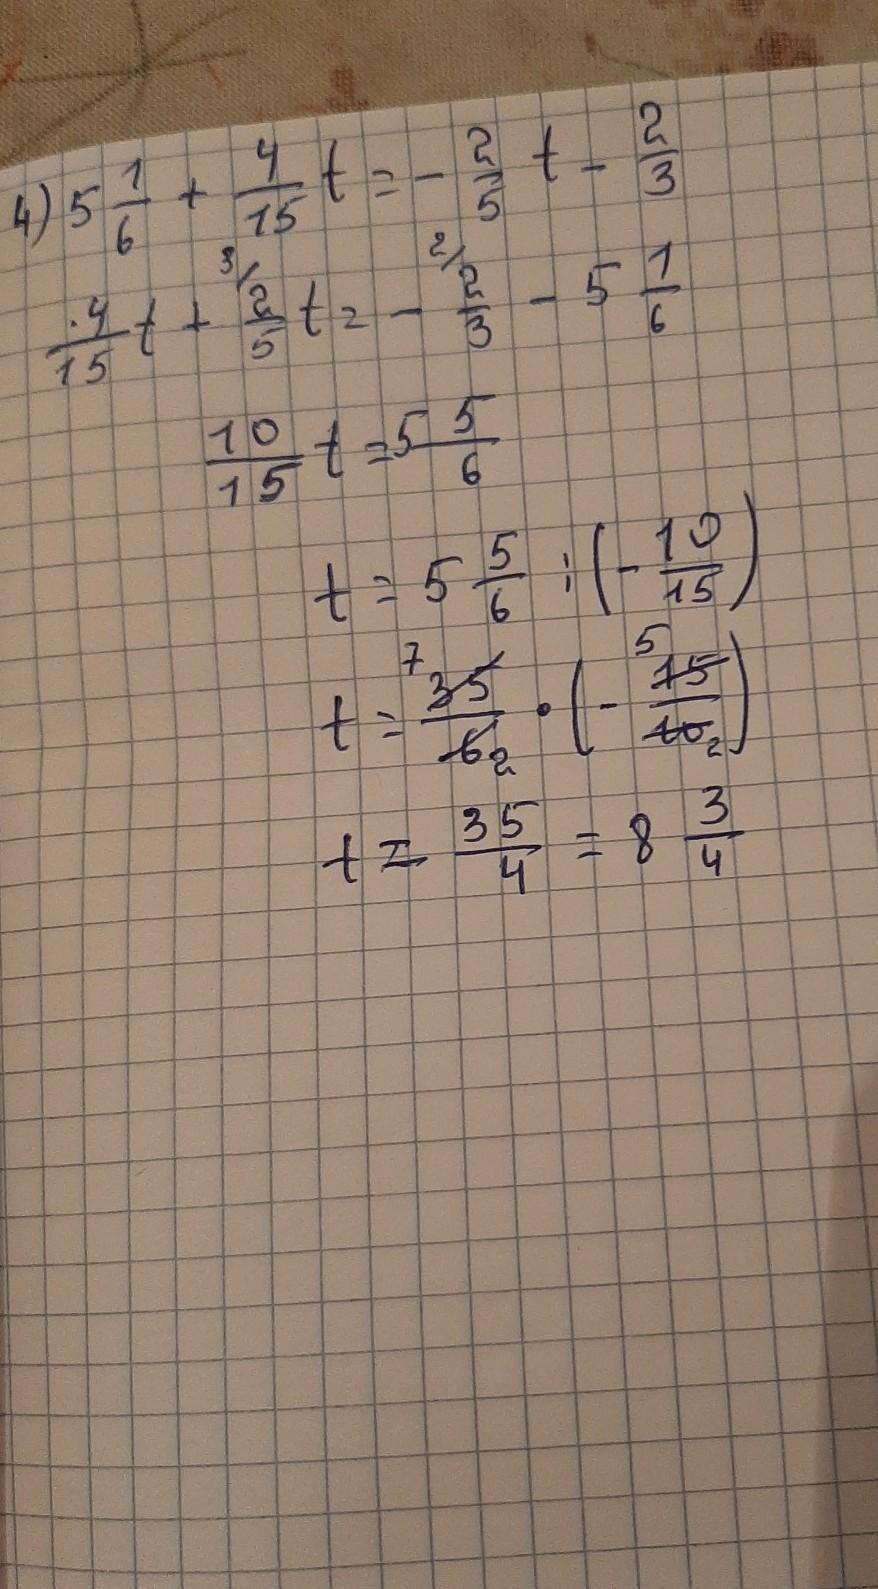 4) 5 1/6 + 4/15 t = - 2/5 t - 2/3
4/15 t + 3/ 2/5 t = - 2/ 2/3 - 5 1/6
10/15 t = 5 5/6
t = 5 5/6 : (- 10/15)
t = 7 35/6 2 · (- 5 15/10 2)
t = 35/4 = 8 3/4